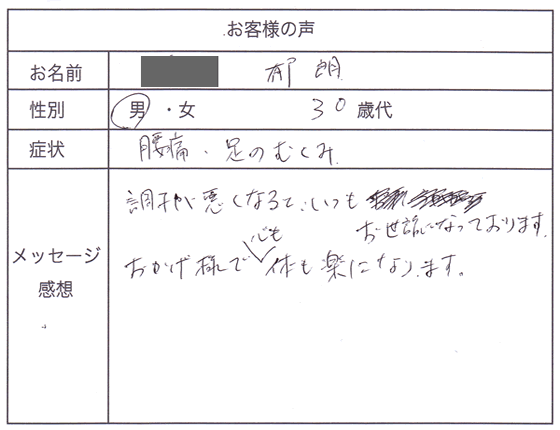 お客様の声
お名前 郁朗
性別 男・女 30歳代
症状 腰痛・足のむくみ
メッセージ
感想
調子が悪くなると、いつも
お世話になっております。
おかげ様で心も体も楽になります。